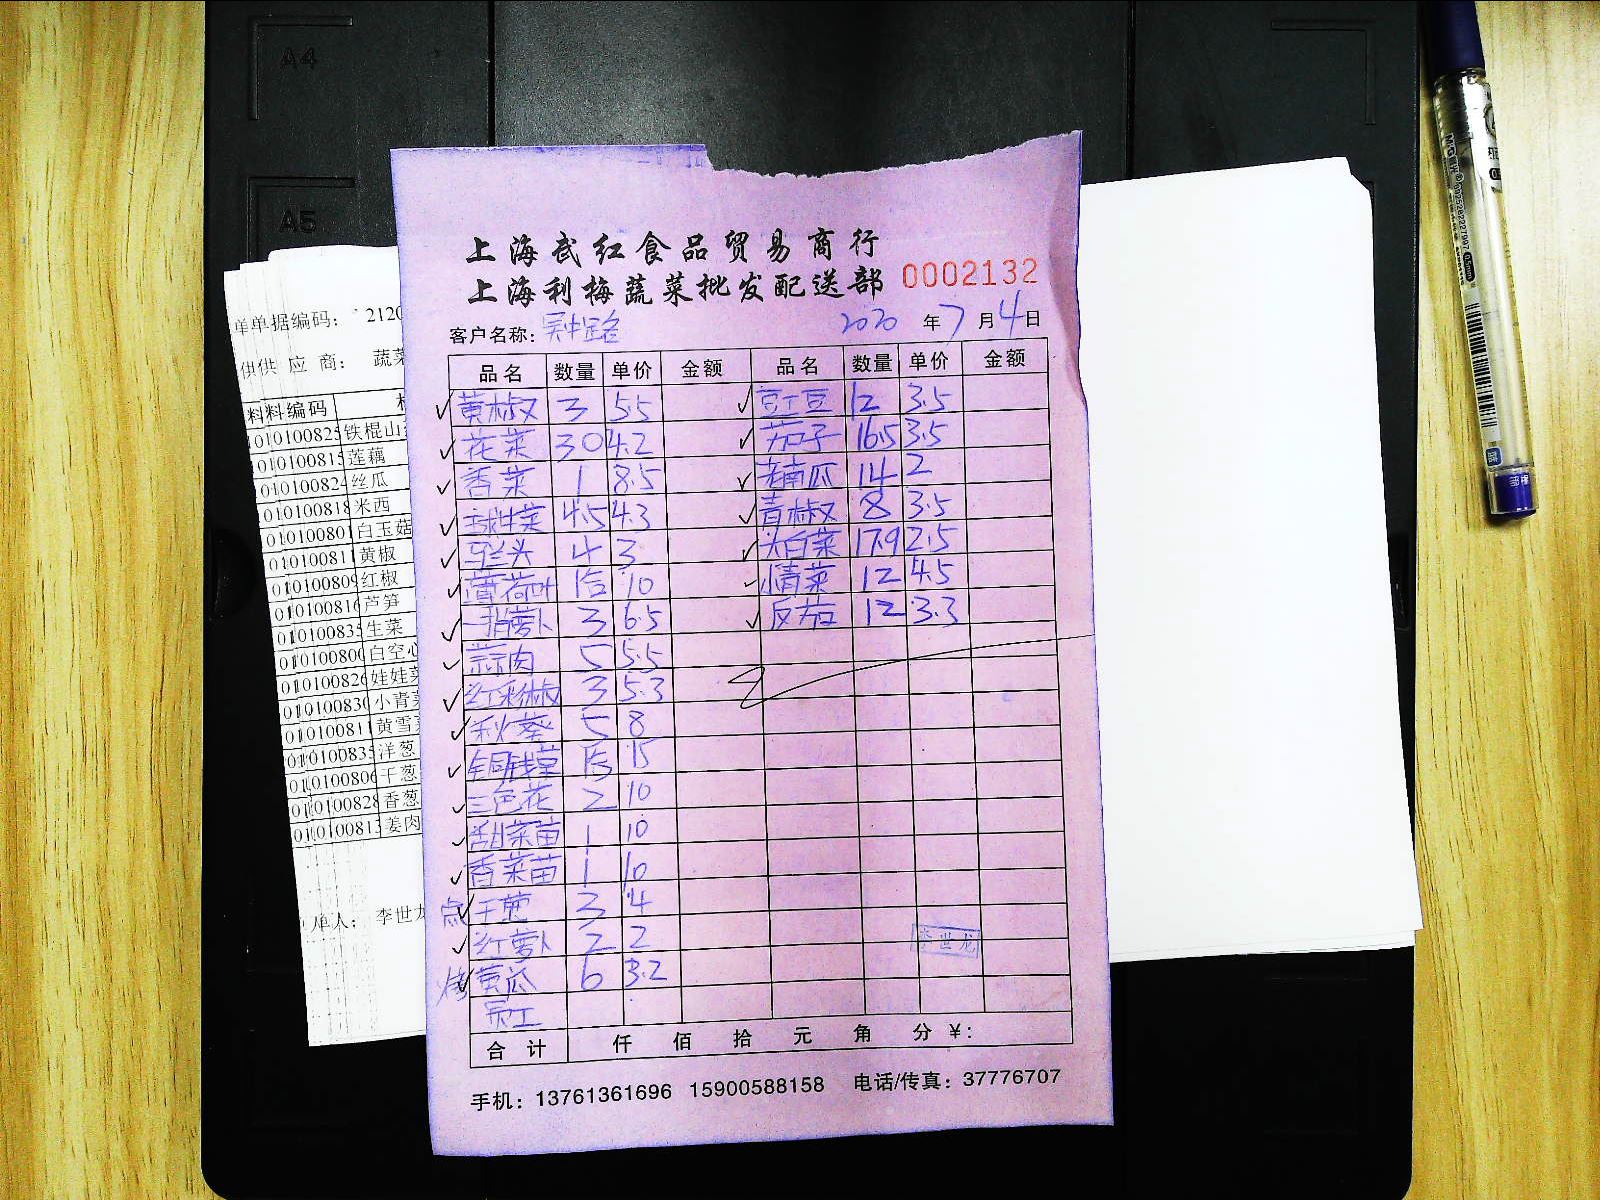 A4
A5
上海武红食品贸易商行
上海利梅蔬菜批发配送部 0002132
客户名称: 2020 年 7 月 4 日
品名 数量 单价 金额 品名 数量 单价 金额
黄椒 3 5.5 豇豆 12 3.5
花菜 30 4.2 茄子 16.5 3.5
香菜 1 8.5 老南瓜 14 2
球生菜 4.5 4.3 青椒 8 3.5
马兰头 4 3 大白菜 17.9 2.5
薄荷叶 1斤 10 小青菜 12 4.5
一指萝卜 3 6.5 反茄 12 3.3
蒜肉 5 5.5
红彩椒 3 5.3
秋葵 5 8
铜钱草 15
三色花 2 10
甜菜苗 1 10
香菜苗 1 10
点 干葱 3 4
红萝卜 2 2
烤 黄瓜 6 3.2
员工
李世龙
合计 仟 佰 拾 元 角 分 ¥:
手机: 13761361696 15900588158 电话/传真: 37776707
单单据编码: 2120
供供 应 商: 蔬菜
料料编码
0100825 铁棍山
0100815 莲藕
0100824 丝瓜
0100818 米西
010080 白玉菇
010081 黄椒
0100809 红椒
0100816 芦笋
0100835 生菜
010080 白空心
0100826 娃娃菜
0100830 小青菜
010081 黄雪
010083 洋葱
0100806 干葱
0100828 香葱
010081 姜肉
单人: 李世龙